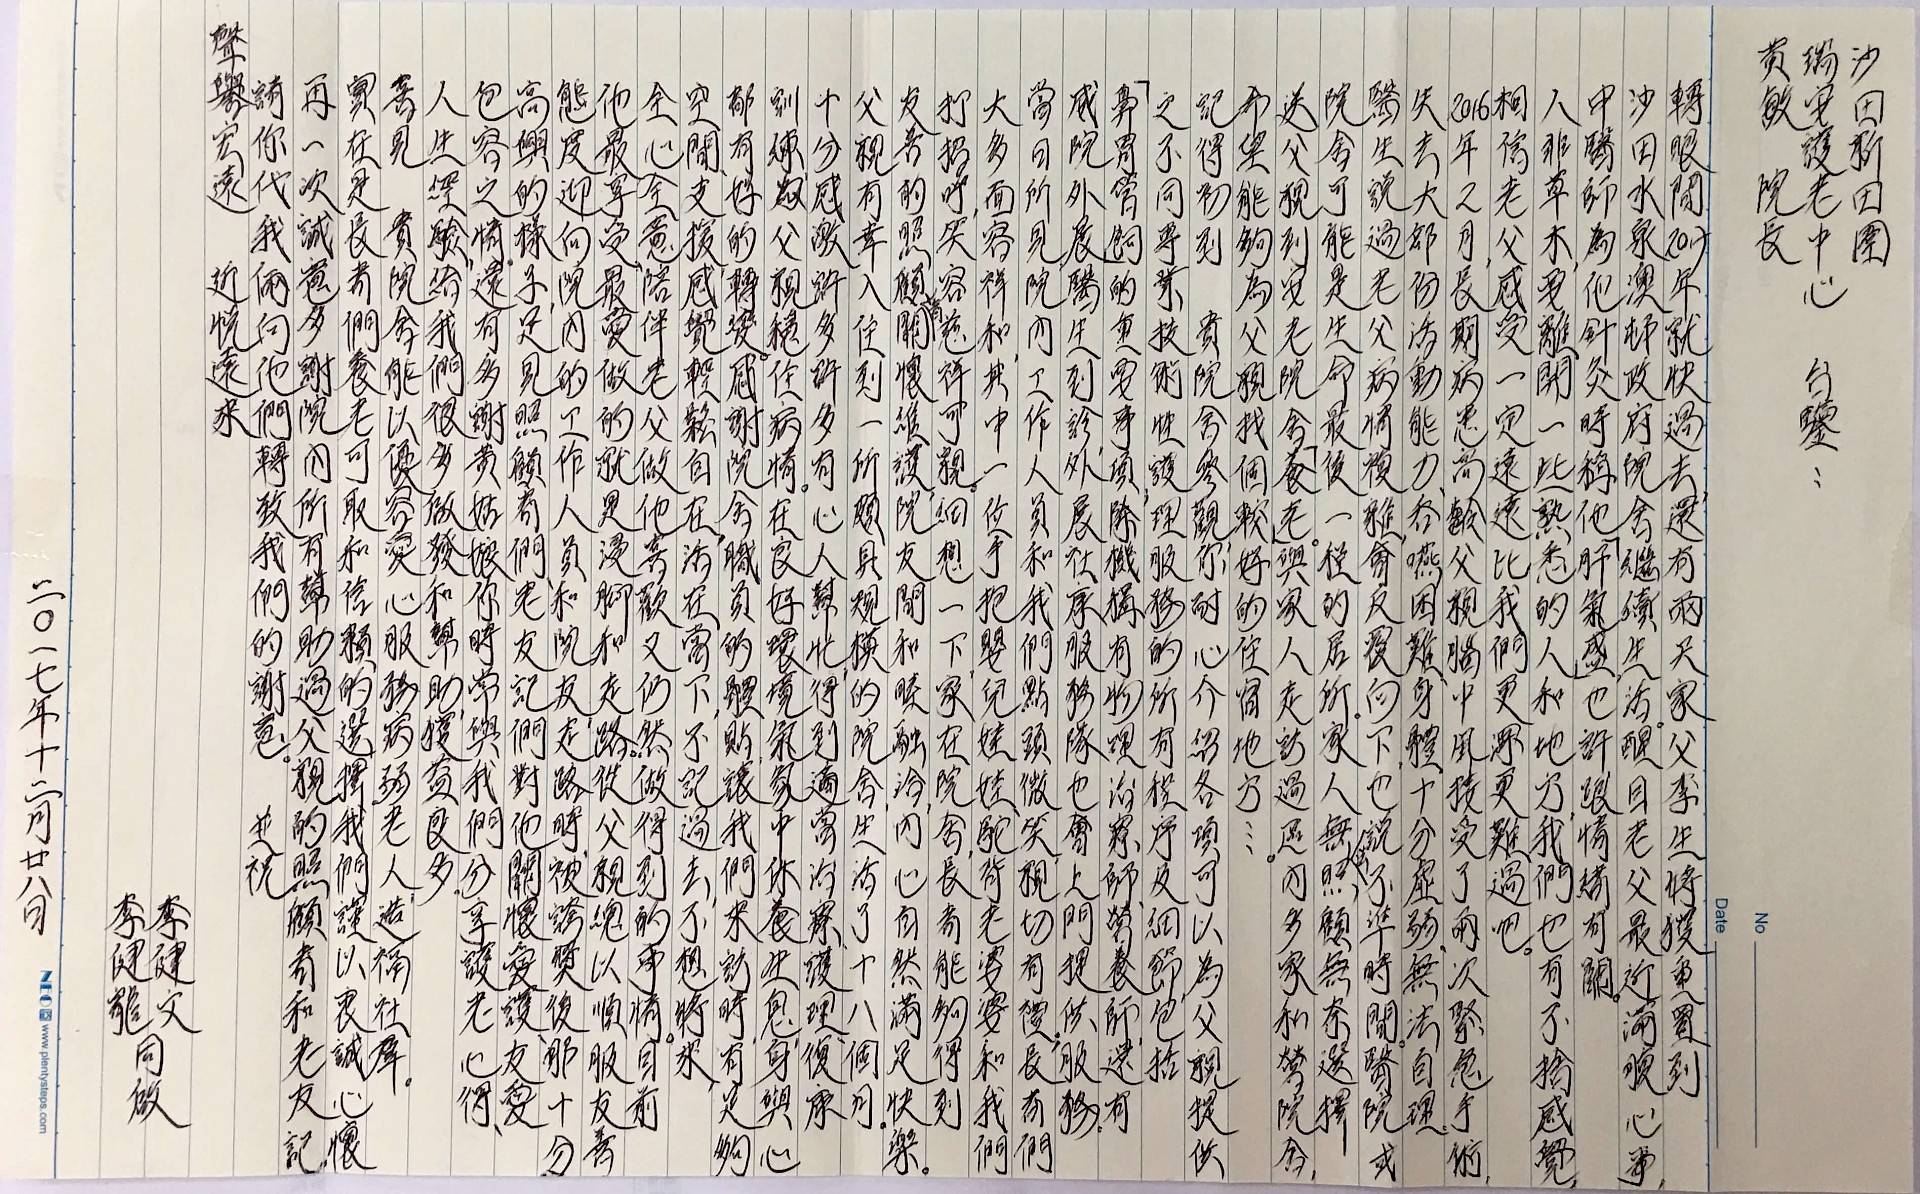 沙田新田圍
瑞安護老中心 台鑒：
黃敏 院長
轉眼間2017年就快過去，還有兩天家父李生將獲重置到
沙田水泉澳邨政府院舍繼續生活。醒目老父最近滿腹心事，
中醫師為他針灸時稱他「肝氣盛」也許跟情緒有關。
人非草木，要離開一些熟悉的人和地方，我們也有不捨感覺，
相信老父感受一定遠遠比我們更深更難過吧。
2016年2月，長期病患高齡父親腦中風接受了兩次緊急手術，
失去大部份活動能力，吞嚥困難，身體十分虛弱，無法自理。
醫生說過老父病情複雜，會反覆向下，也說不準時間。醫院或
院舍可能是生命最後一程的居所。家人無人照顧，無奈選擇
送父親到安老院舍「養老」。與家人走訪過區內多家私營院舍，
希望能夠為父親找個較好的住宿地方…
記得初到 貴院舍參觀，你耐心介紹各項可以為父親提供
之不同專業技術性護理服務的所有程序及細節，包括
「鼻胃管飼」的重要事項，除機構有物理治療師，營養師，還有
威院外展醫生到診外，外展社康服務隊也會上門提供服務。
當日所見，院內工作人員和我們點頭微笑，親切有禮。長者們
大多面容祥和，其中一位手抱嬰兒娃娃，駝背老婆婆和我們
打招呼，笑容慈祥可親。細想一下，家在院舍，長者能夠得到
友善的照顧者，關懷維護，院友間和睦融洽，內心自然滿足快樂。
父親有幸入住到一所頗具規模的院舍，生活了十八個月。
十分感激許多許多有心人幫忙，得到適當治療，護理，復康
訓練，父親穩住病情。在良好環境氣氛中休養生息，身與心
都有好的轉變。感謝院舍職員的體貼，讓我們來訪時有足夠
空間，支援，感覺輕鬆自在，活在當下，不記過去，不想將來，
全心全意陪伴老父做他喜歡又仍然做得到的事情。目前
他最享受，最愛做的就是燙腳和走路。從父親總以順服友善
態度迎向院內的工作人員和院友，走路時被誇獎後那十分
高興的樣子，足見照顧者們，老友記們對他關懷愛護，友愛
包容之情。還有多謝黃姑娘你時常與我們分享護老心得，
人生經驗，給我們很多啟發和幫助，獲益良多。
喜見 貴院舍能以優容愛心服務病弱老人，造福社群。
實在是長者們養老可取和信賴的選擇。我們謹以衷誠心懷
再一次誠意多謝院內所有幫助過父親的照顧者和老友記。
請你代我倆向他們轉致我們的謝意。 並祝
聲譽宏遠 近悅遠來
李健文
李健龍 同啟
二〇一七年十二月廿八日
No
Date
NEO www.plentysteps.com